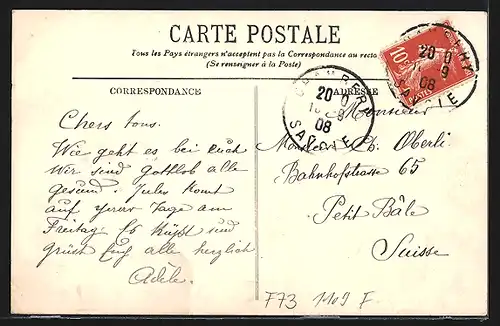 CARTE POSTALE
Tous les Pays étrangers n'acceptent pas la Correspondance au recto
(Se renseigner à la Poste)
CORRESPONDANCE
ADRESSE
CHAMBERY
20 0
9
08
SAVOIE
20 0
9
08
SAVOIE
10
Chers tous.
Wie geht es bei Euch
Wir sind Gottlob alle
gesund. Jules komt
auf Tage am
Freitag. Es Küsst und
grüsst Euch alle herzlich
Adèle.
Monsieur
Monsieur Ch. Oberli
Bahnhofstrasse 65
Petit Bâle
Suisse
F73 1109 F